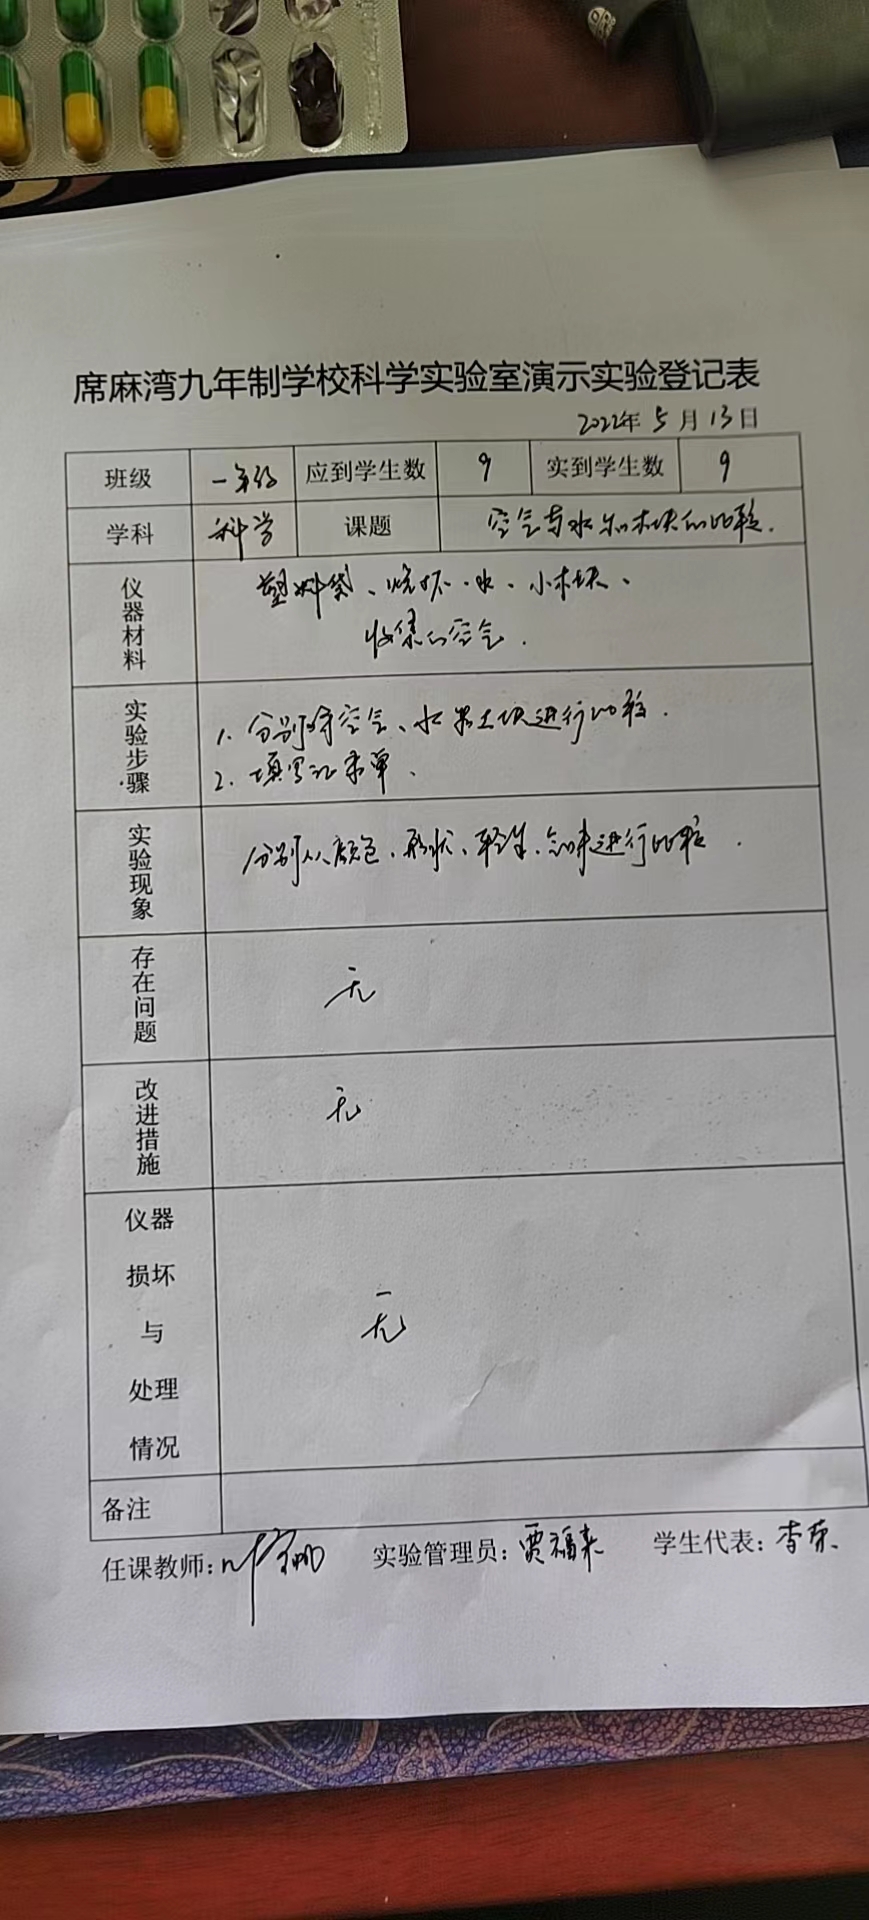 席麻湾九年制学校科学实验室演示实验登记表
2022年5月13日
班级 一年级 应到学生数 9 实到学生数 9
学科 科学 课题 空气与水和木块的比较.
仪器材料 塑料袋、烧杯、水、小木块、
收集的空气.
实验步骤 1. 分别将空气、水 木块进行比较.
2. 填写记录单.
实验现象 分别从颜色、形状、轻重、气味进行比较.
存在问题 无
改进措施 无
仪器
损坏
与
处理
情况
无
备注
任课教师: 实验管理员: 贾福来 学生代表: 李荣